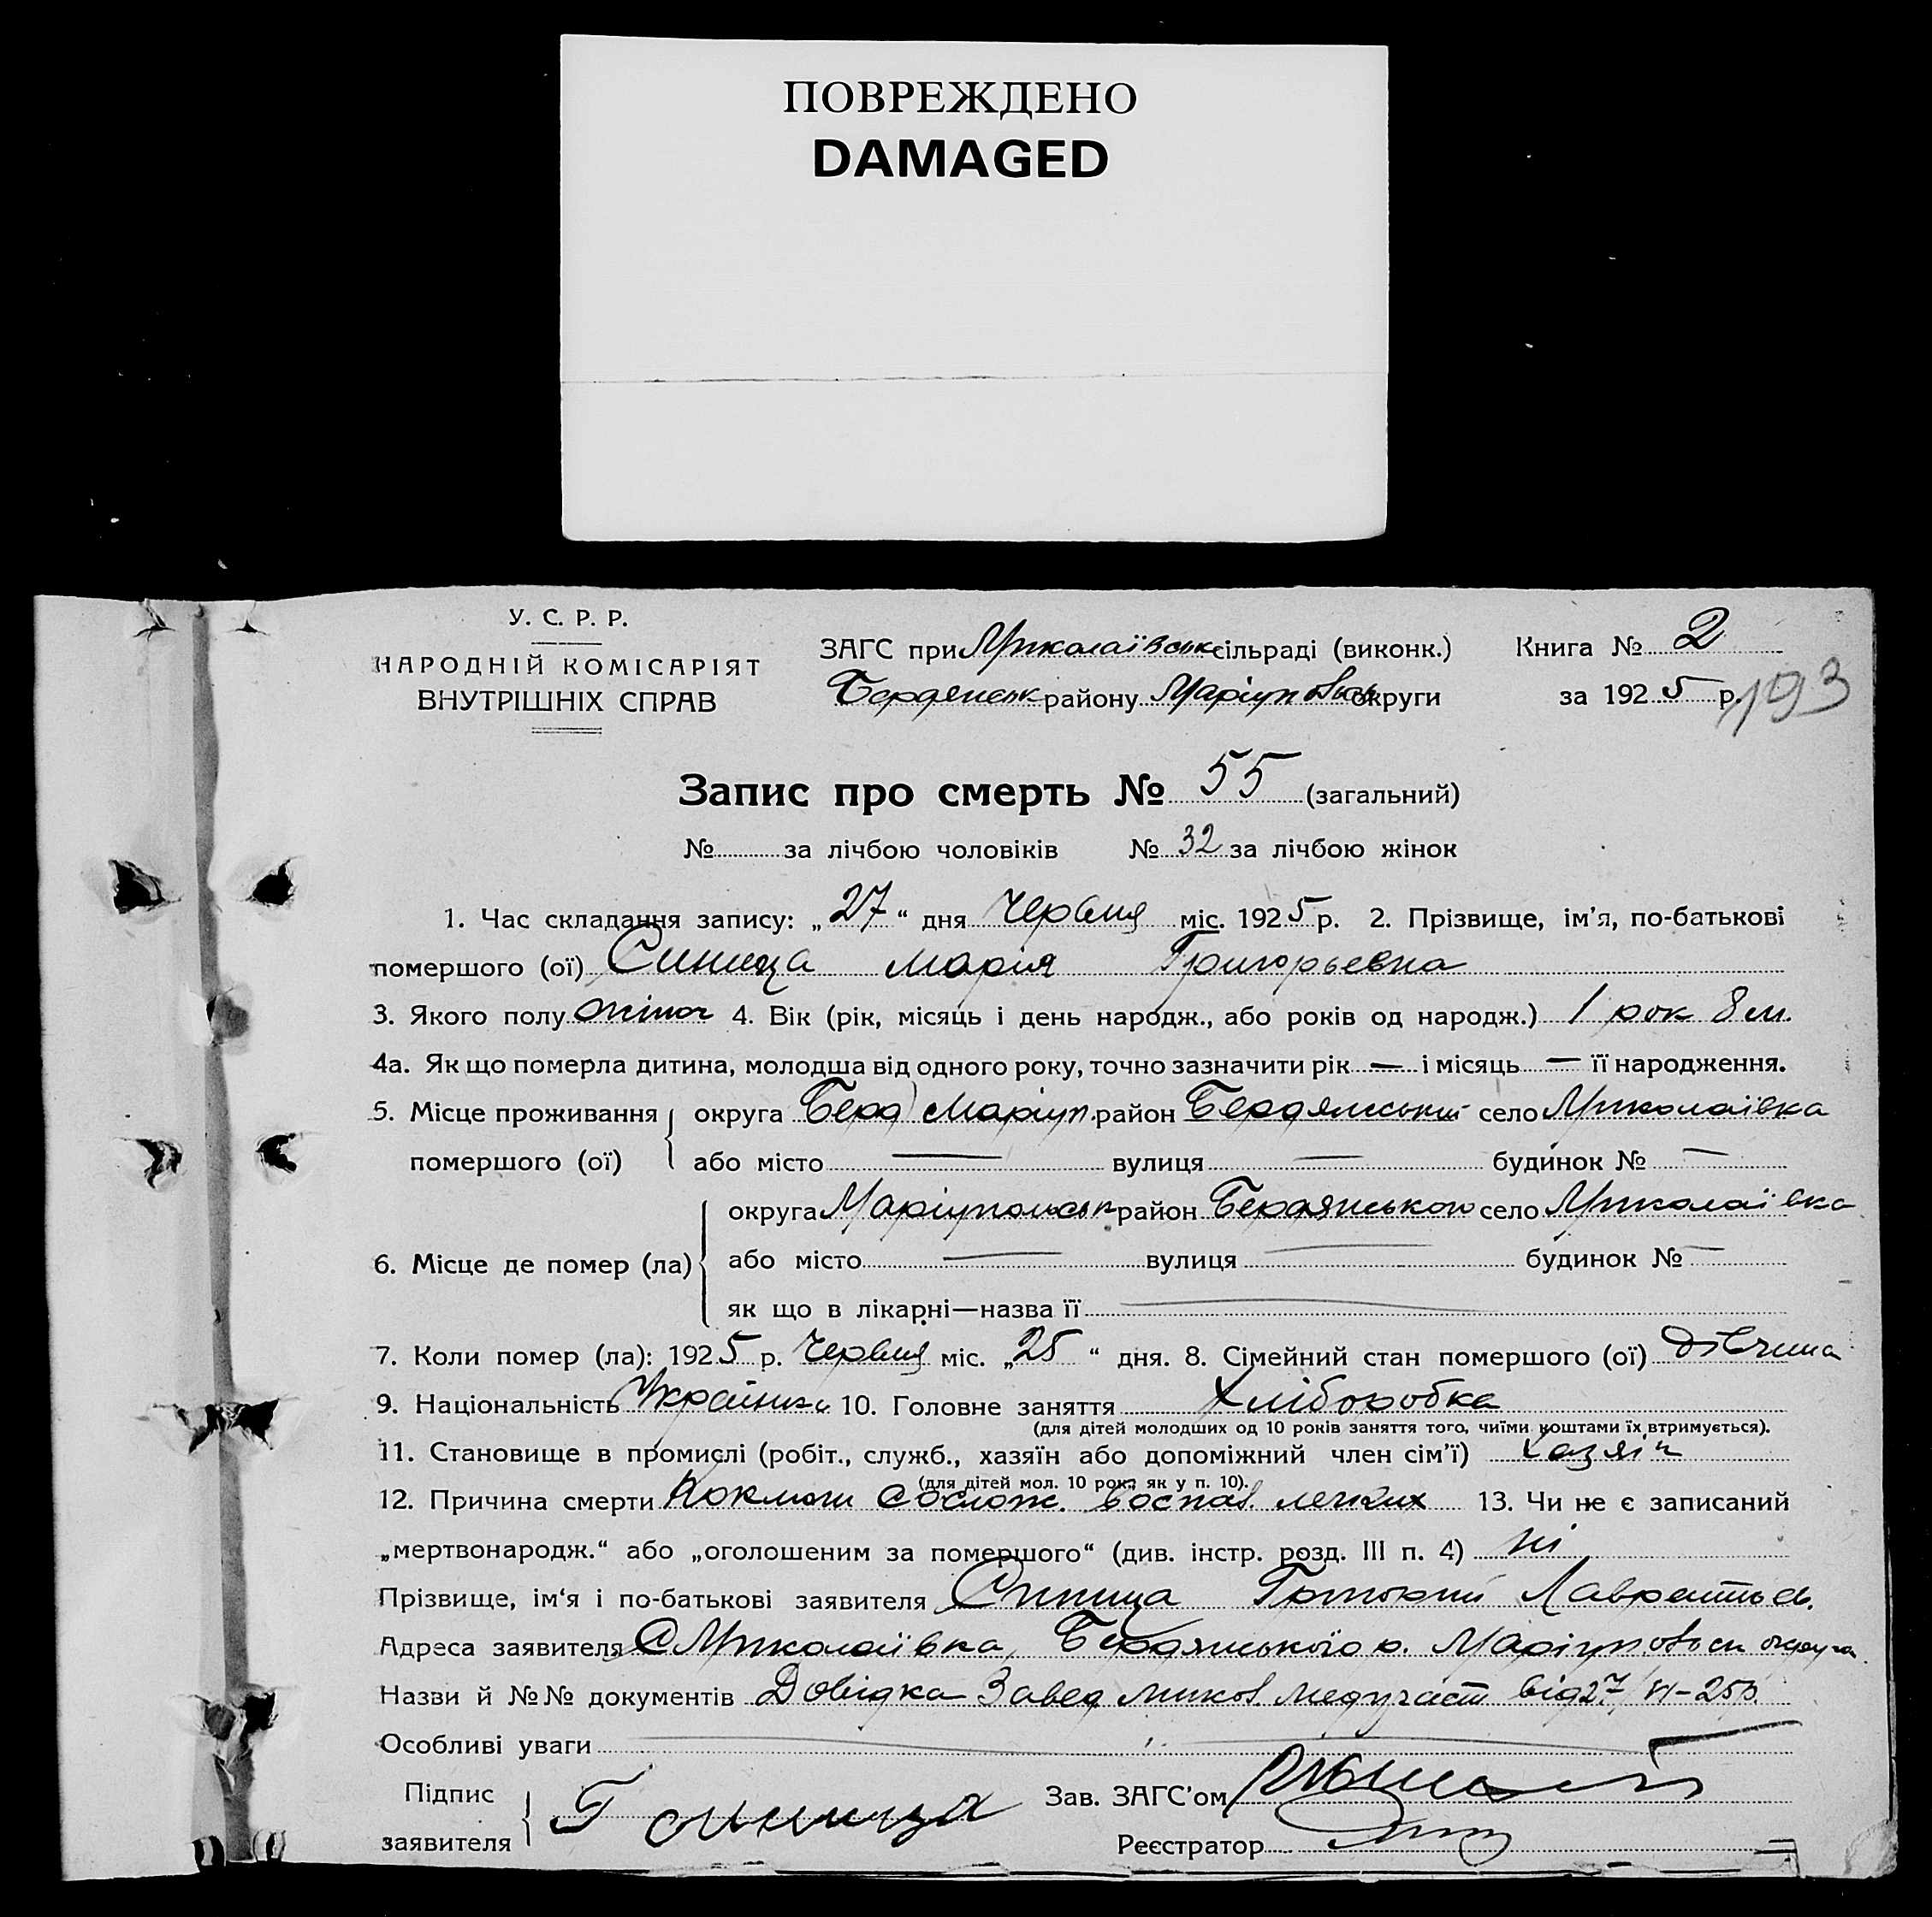 ПОВРЕЖДЕНО
DAMAGED
У. С. Р. Р.
НАРОДНІЙ КОМІСАРІЯТ
ВНУТРІШНІХ СПРАВ
ЗАГС при Миколаївськ сільраді (виконк.)
Бердянськ району Маріупольськ округи
Книга № 2
за 1925 р.
193
Запис про смерть № 55 (загальний)
№ за лічбою чоловіків № 32 за лічбою жінок
1. Час складання запису: „27“ дня Червня міс. 1925 р. 2. Прізвище, ім'я, по-батькові
помершого (ої) Синица Мария Григорьевна
3. Якого полу жіноч 4. Вік (рік, місяць і день народж., або років од народж.) 1 рок 8 м.
4а. Як що померла дитина, молодша від одного року, точно зазначити рік — і місяць — її народження.
5. Місце проживання округа Берд) Маріуп. район Бердянський село Миколаївка
помершого (ої) або місто — вулиця — будинок № —
округа Маріупольськ район Бердянського село Миколаївка
6. Місце де помер (ла) або місто — вулиця — будинок № —
як що в лікарні—назва її —
7. Коли помер (ла): 1925 р. Червня міс. „25“ дня. 8. Сімейний стан помершого (ої) дівчина
9. Національність Українка 10. Головне заняття Хліборобка
(для дітей молодших од 10 років заняття того, чиїми коштами їх втримується).
11. Становище в промислі (робіт., служб., хазяїн або допоміжний член сім'ї) хазяїн
(для дітей мол. 10 рок. як у п. 10).
12. Причина смерти Коклюш осложн. воспал. легких 13. Чи не є записаний
„мертвонародж.“ або „оголошеним за помершого“ (див. інстр. розд. III п. 4) ні
Прізвище, ім'я і по-батькові заявителя Синица Григорий Лаврентьев.
Адреса заявителя С Миколаївка, Бердянського р. Маріупольск округа
Назви й №№ документів Довідка Завед Микол. Медучаст від 27/VI-25р.
Особливі уваги
Підпис
заявителя Г синица
Зав. ЗАГС'ом
Реєстратор